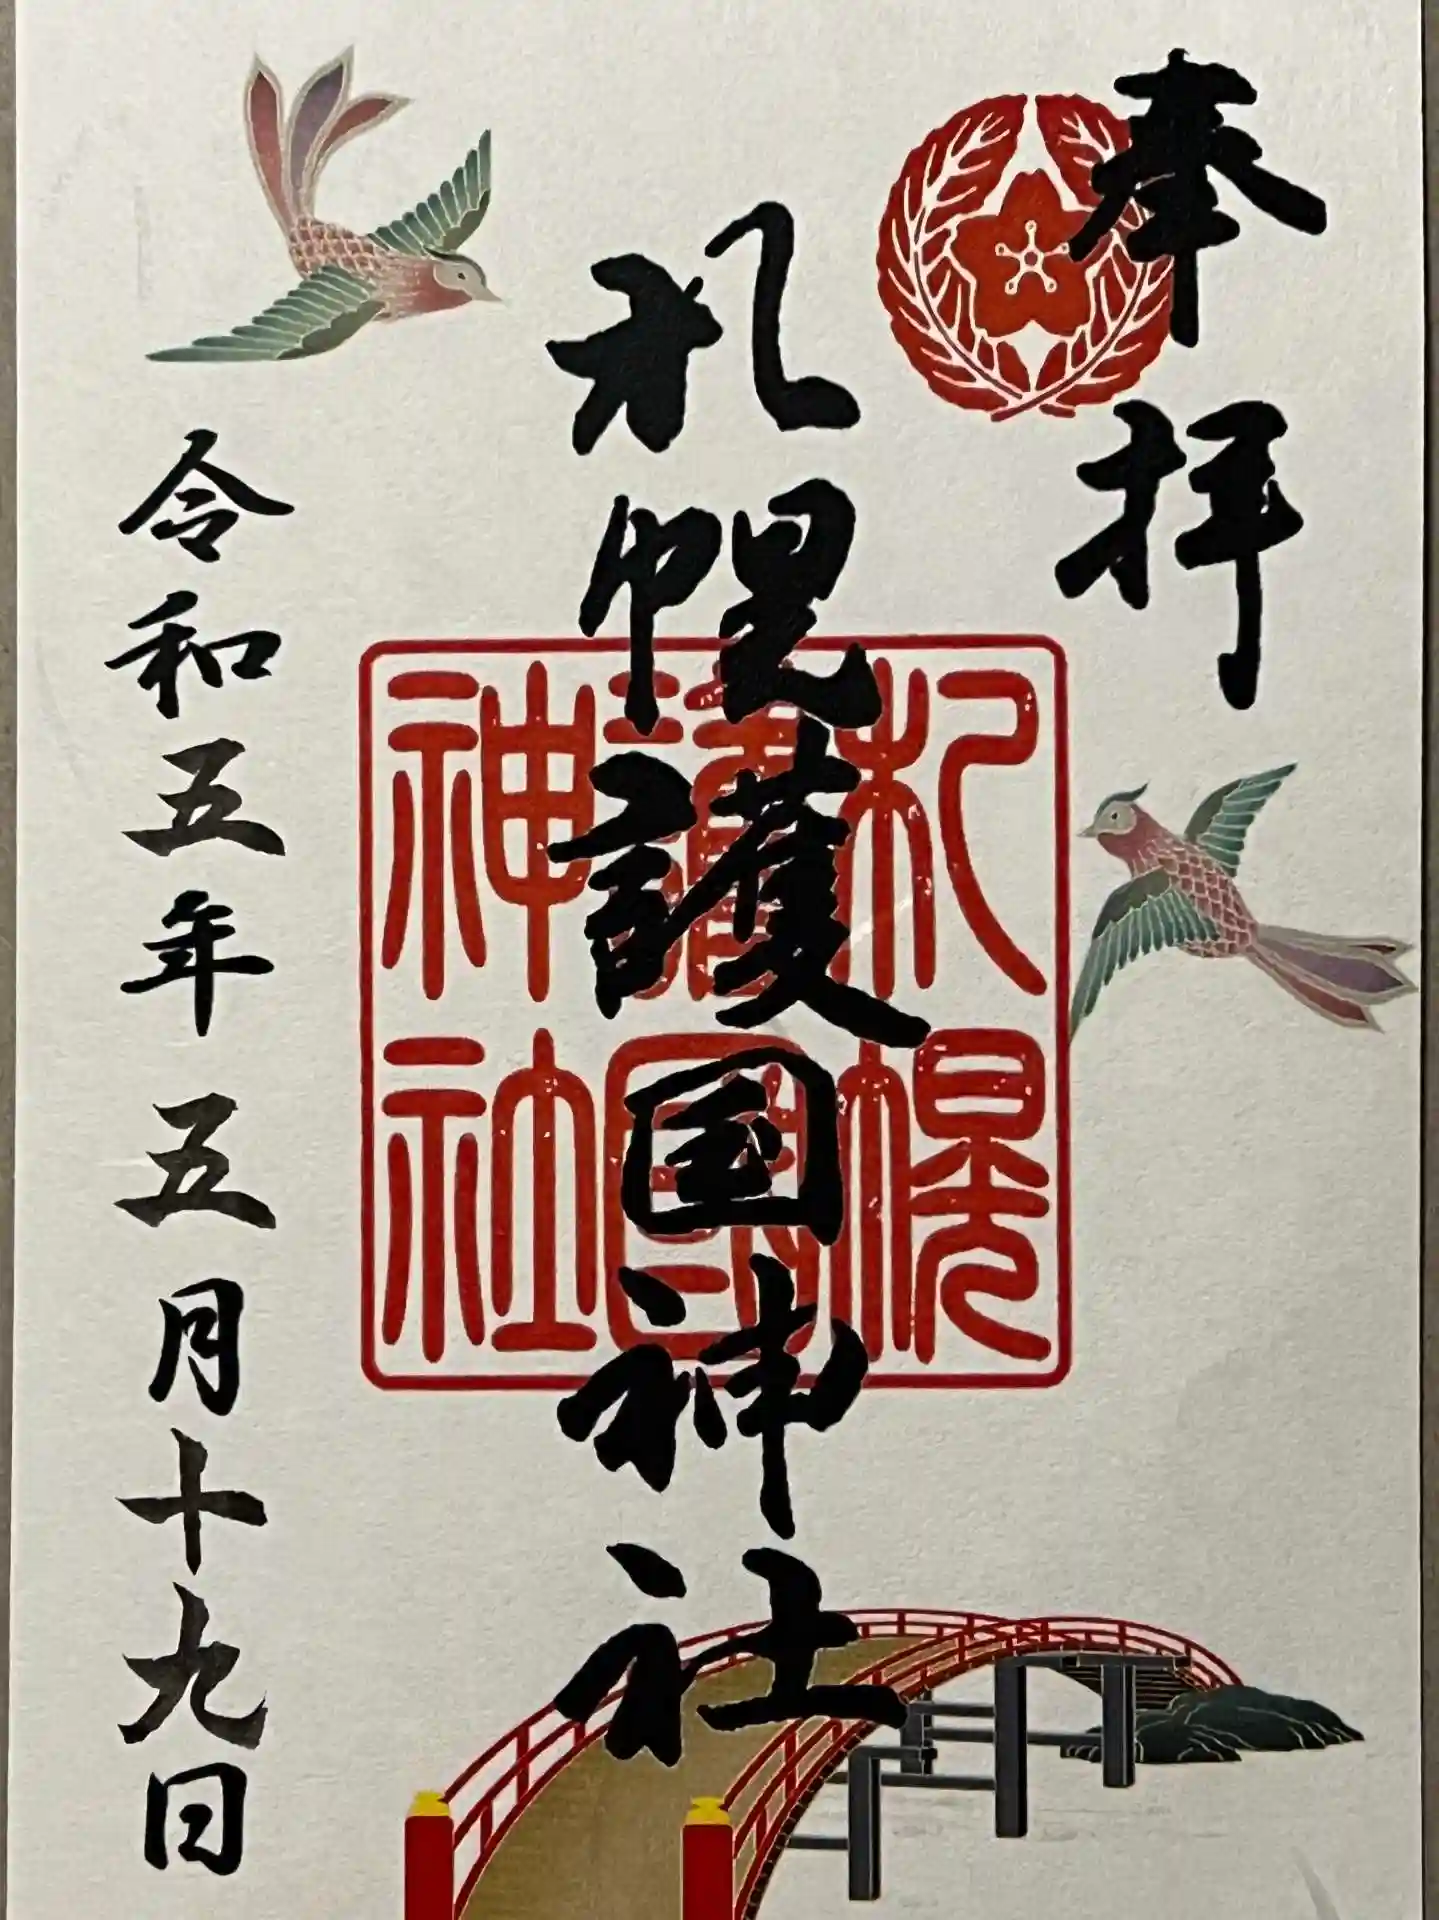 奉拝
札幌護国神社
札幌
護國
神社
令和五年五月十九日